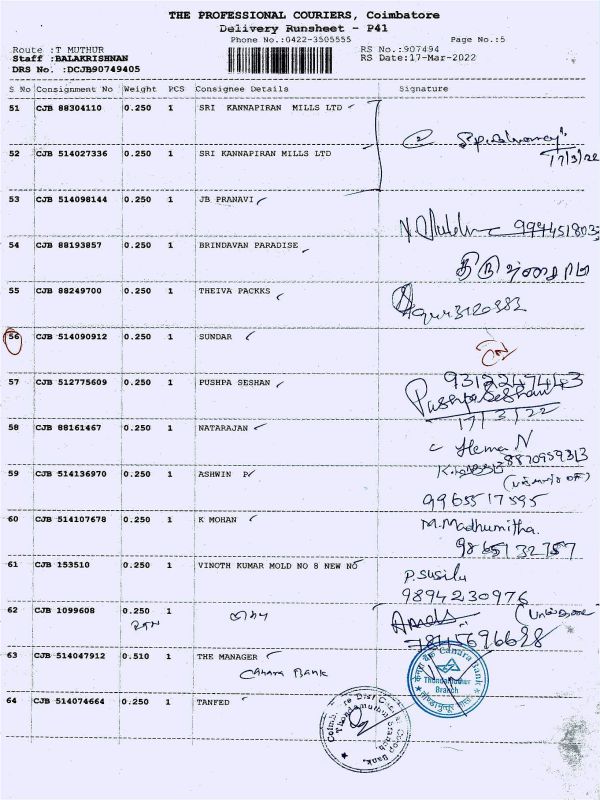 THE PROFESSIONAL COURIERS, Coimbatore
Delivery Runsheet - P41
Phone No.:0422-3505555
Page No.:5
Route :T MUTHUR
RS No.:907494
Staff :BALAKRISHNAN
RS Date:17-Mar-2022
DRS No. :DCJB90749405
S No Consignment No Weight PCS Consignee Details Signature
51 CJB 88304110 0.250 1 SRI KANNAPIRAN MILLS LTD
17/3/22
52 CJB 514027336 0.250 1 SRI KANNAPIRAN MILLS LTD
53 CJB 514098144 0.250 1 JB PRANAVI
54 CJB 88193857 0.250 1 BRINDAVAN PARADISE
55 CJB 88249700 0.250 1 THEIVA PACKKS
56 CJB 514090912 0.250 1 SUNDAR
9312247443
57 CJB 512775609 0.250 1 PUSHPA SESHAN
Pushpa Seshan
17/3/22
58 CJB 88161467 0.250 1 NATARAJAN
Hema N
8870959313
59 CJB 514136970 0.250 1 ASHWIN P
9965517595
60 CJB 514107678 0.250 1 K MOHAN
M.Madhumitha.
9865132757
61 CJB 153510 0.250 1 VINOTH KUMAR MOLD NO 8 NEW NO
P.Susila
9894230976
62 CJB 1099608 0.250 1
7845696628
63 CJB 514047912 0.510 1 THE MANAGER
CANARA BANK
Canara Bank
Thondamuthur
Branch
64 CJB 514074664 0.250 1 TANFED